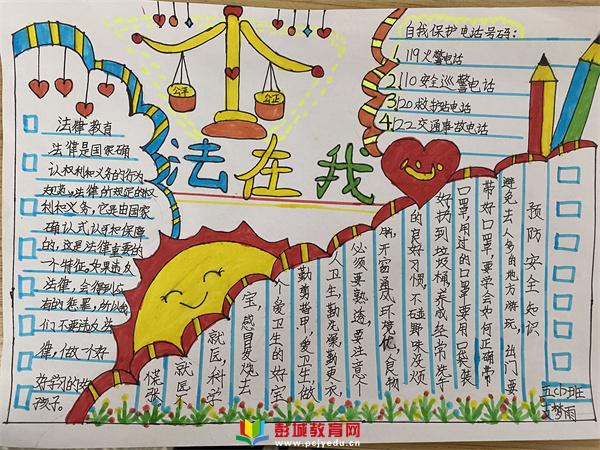 自我保护电话号码：
1.119火警电话
2.110安全巡警电话
3.120救护站电话
4.122交通事故电话
公平
公正
法在我
法律教育
法律是国家确
认权利和义务的行为
规范。法律的规定的权
利和义务，它是由国家
确认式认可和保障
的，这是法律重要的
一个特征，如果违反
法律，会得到应
有的惩罚，所以我
们不要违反法
律，做一个好
好学习的好
孩子。
预防安全知识
出门要
避免去人多的地方游玩，
带好口罩，要学会如何正确带
口罩，用过的口罩要用口袋装
好，扔到垃圾桶，养成经常洗手
的良好习惯，不碰野味及烦
开窗通风环境优，食物
必须要熟透，要注意个
人卫生，勤洗澡，勤更衣，
勤剪指甲，爱卫生，做
个爱卫生的好宝
宝，感冒发烧去
就医，科学
就医不
慌张
五(1)班
彭城教育网
www.pcjyedu.cn